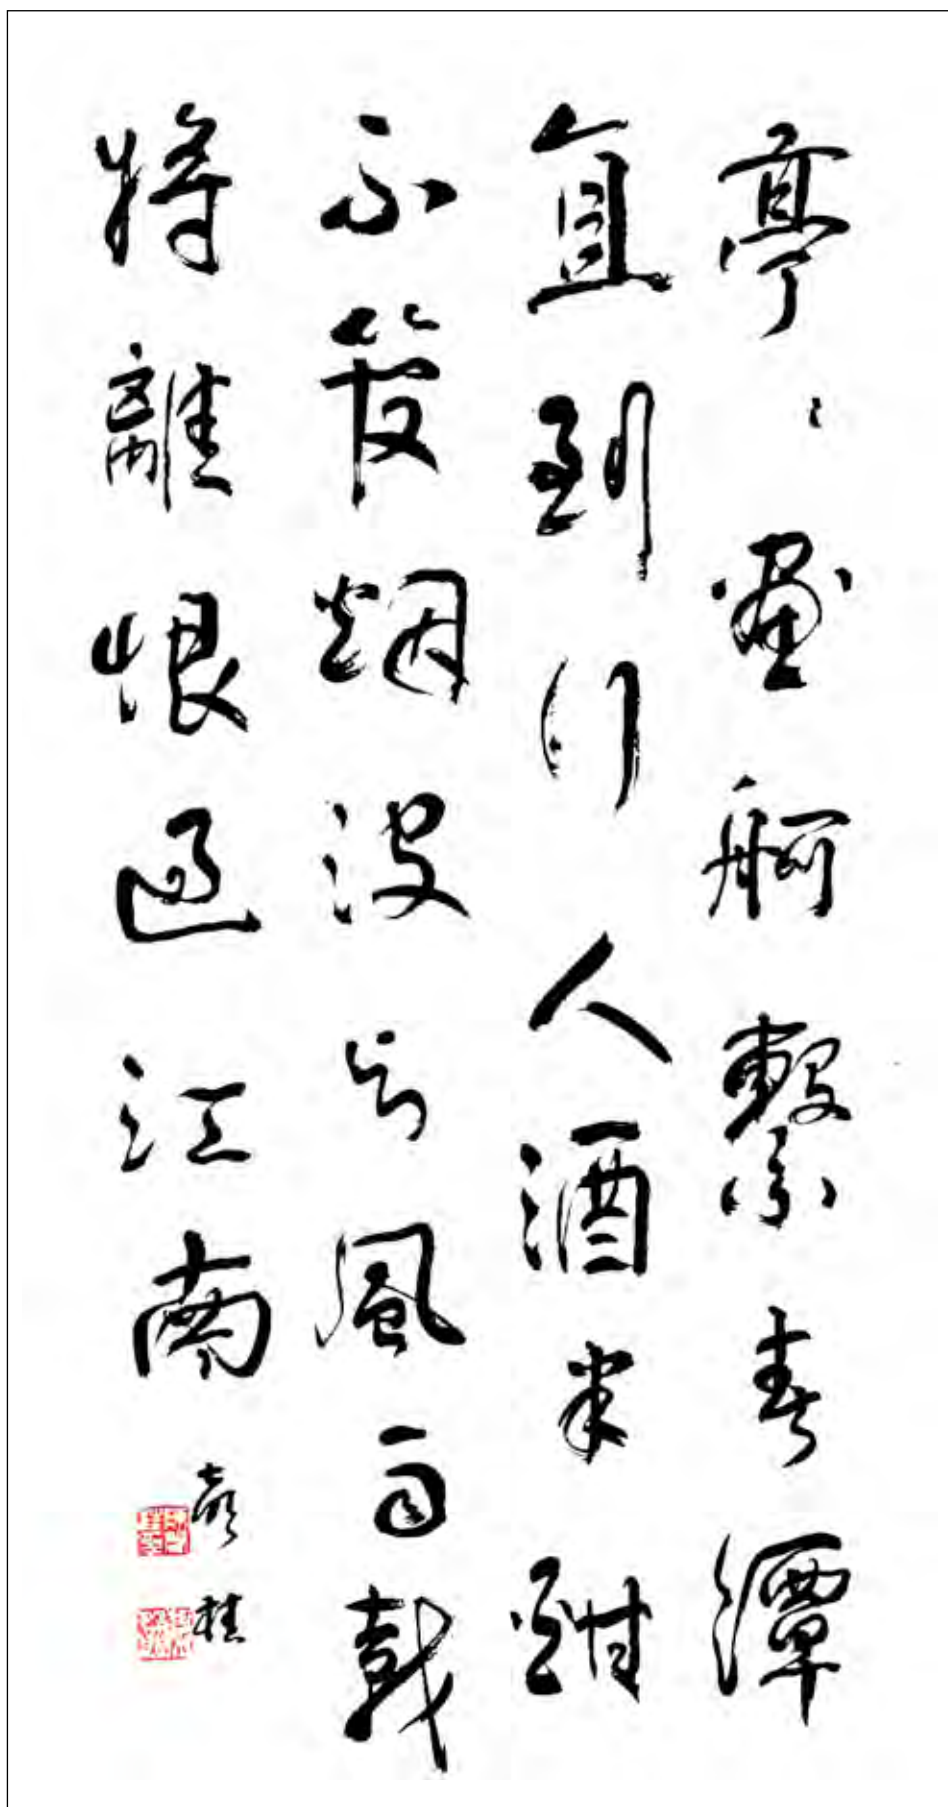 亭〻畫舸繫春潭
直到行人酒半酣
不管烟波与風雨載
將離恨過江南